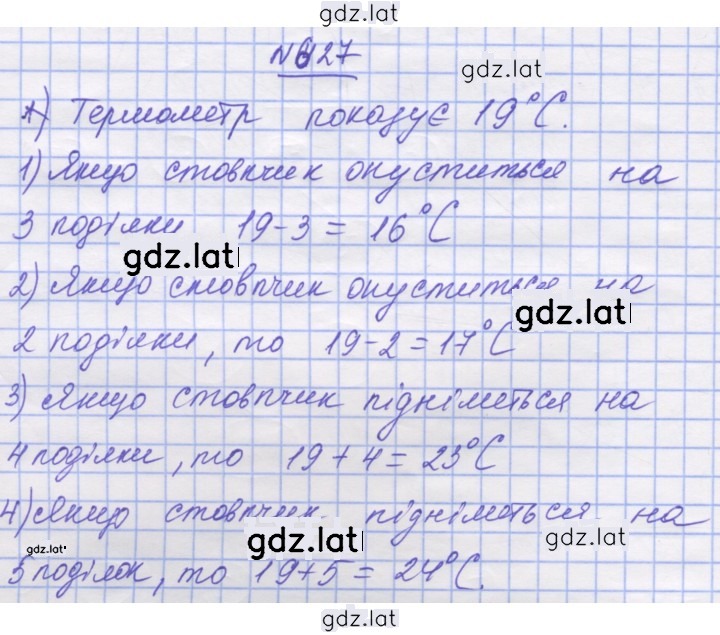 gdz.lat
№627
gdz.lat
А) Термометр показує 19°C.
1) Якщо стовпчик опуститься на
3 поділки 19-3 = 16°C
gdz.lat
2) Якщо стовпчик опуститься на
gdz.lat
2 поділки, то 19-2=17°C
3) Якщо стовпчик підніметься на
4 поділки, то 19+4=23°C
4) Якщо стовпчик підніметься на
gdz.lat
gdz.lat
5 поділок, то 19+5= 24°C.
gdz.lat